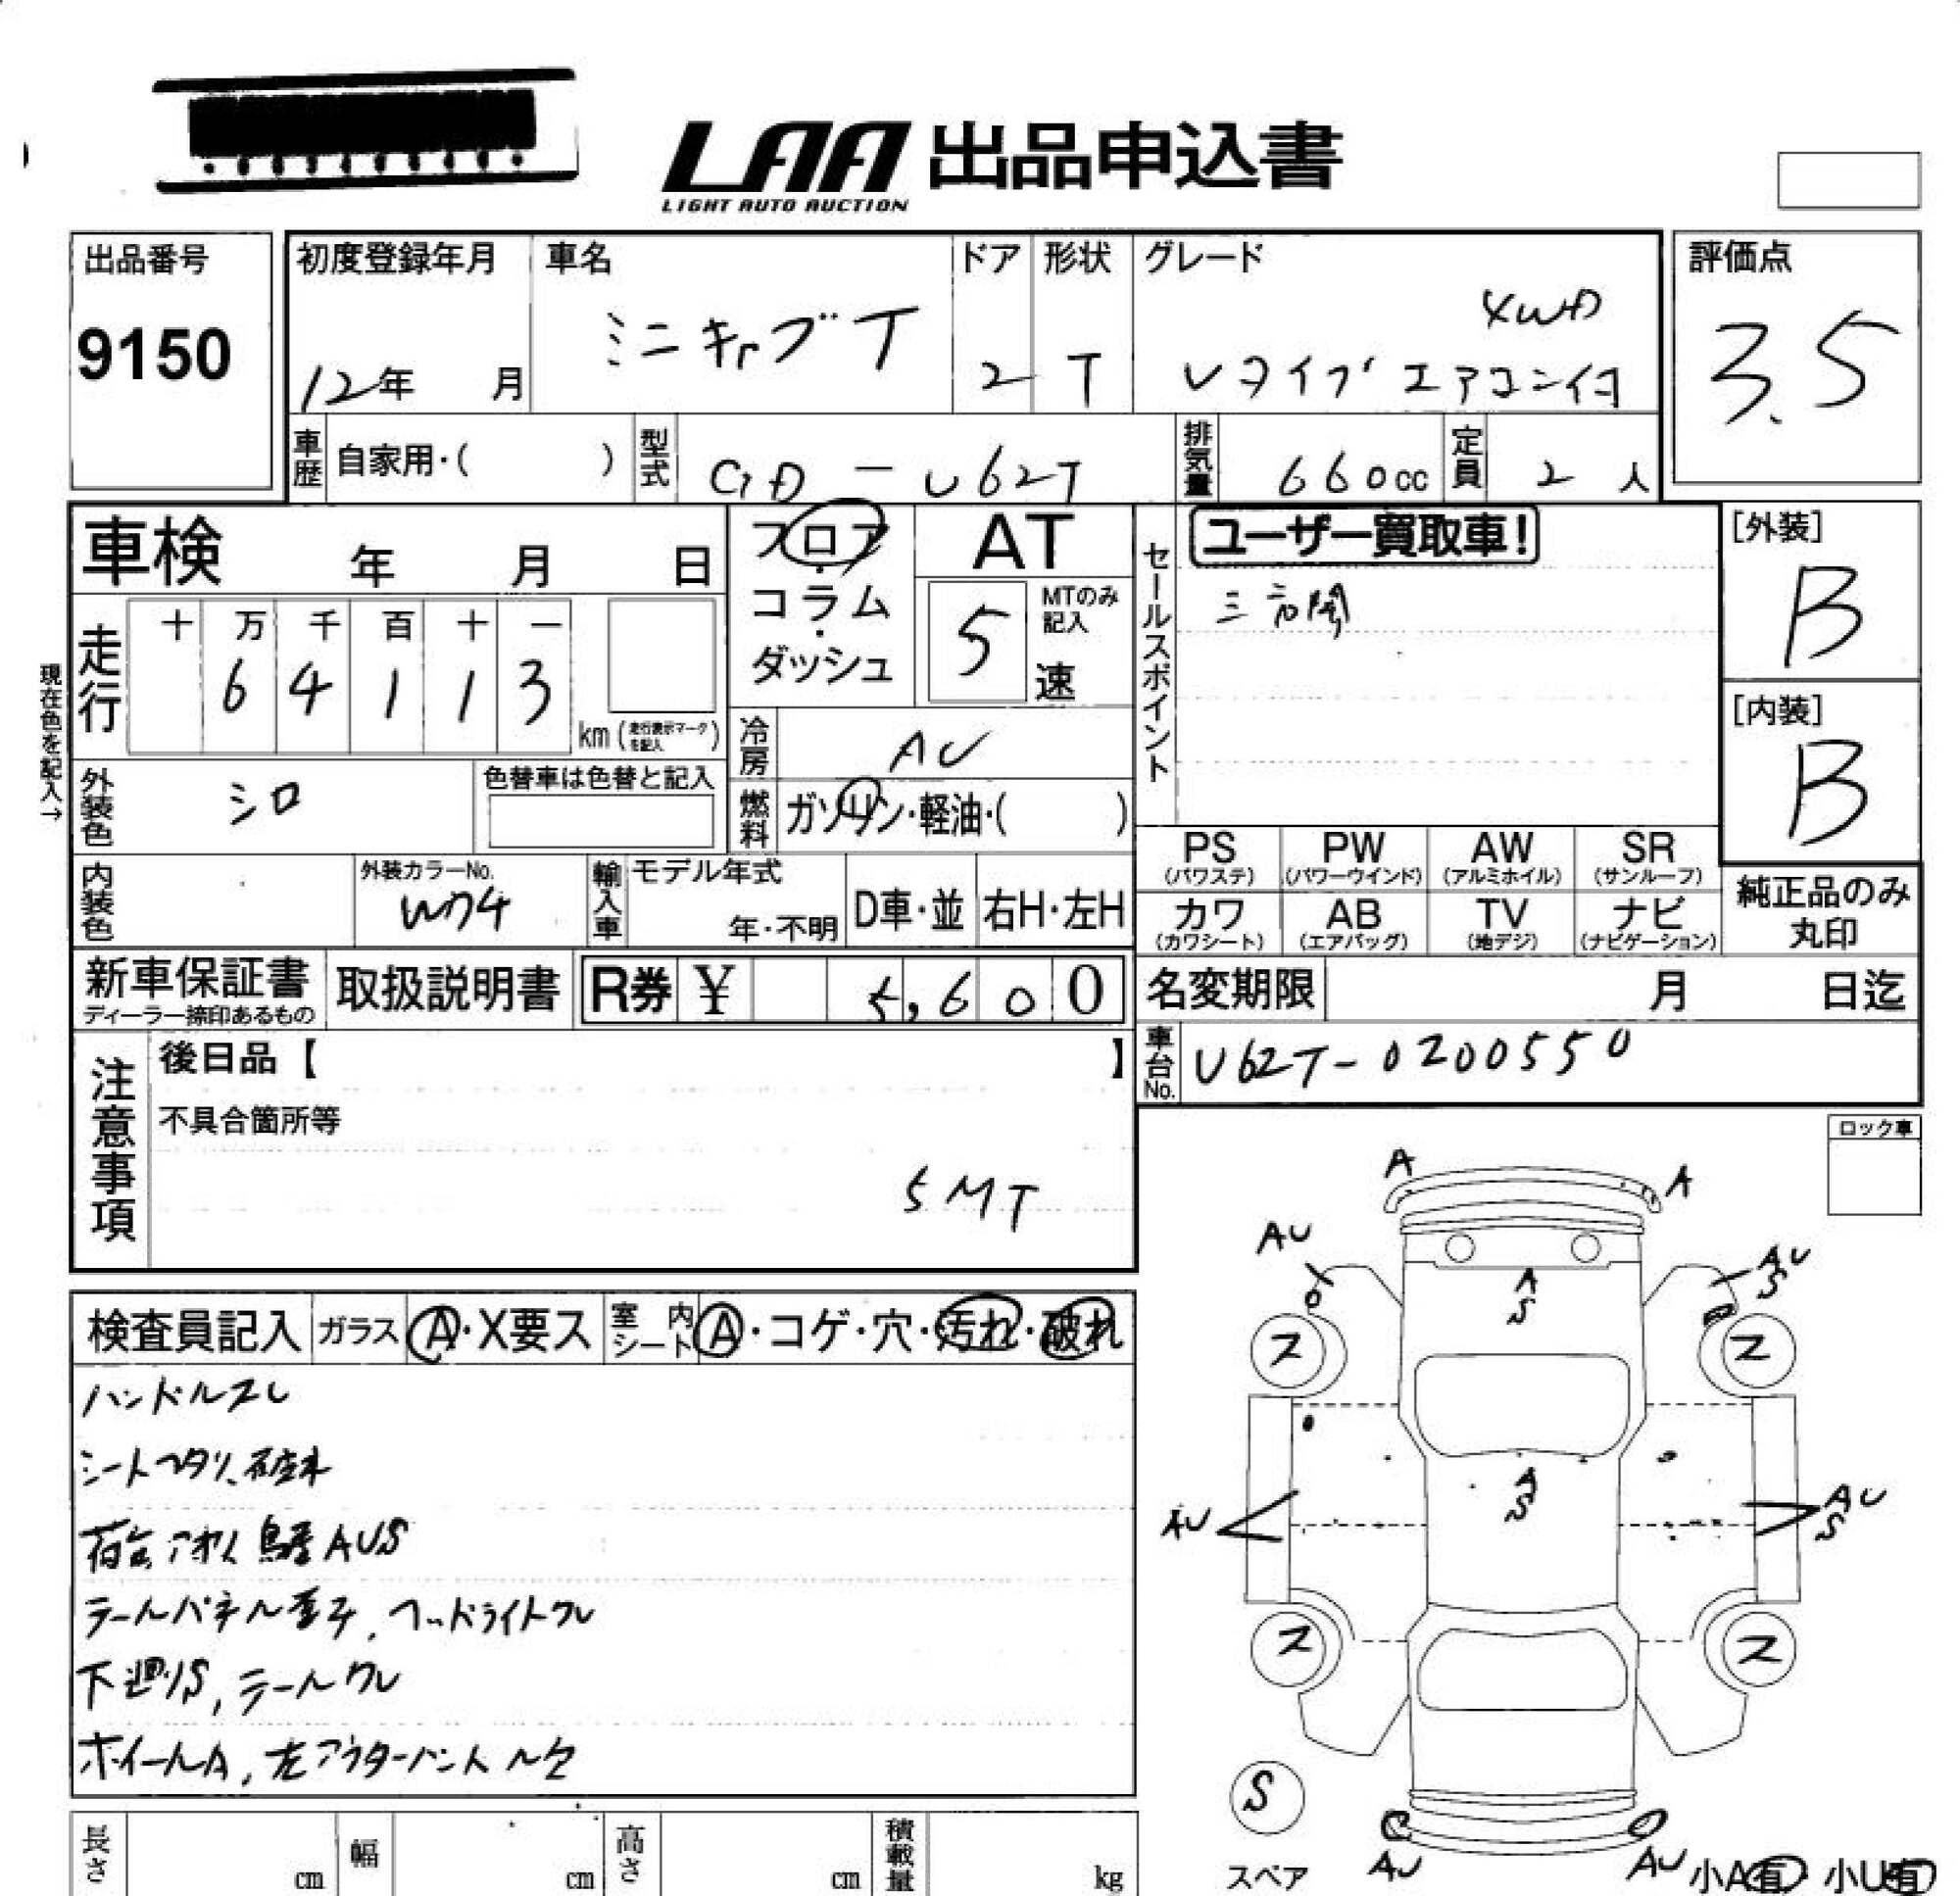 LAA 出品申込書
LIGHT AUTO AUCTION
出品番号
9150
初度登録年月
12年 月
車名
ミニキャブT
ドア
2
形状
T
グレード
4WD
Vタイプ エアコン付
評価点
3.5
車歴 自家用・( )
型式 GD-U62T
排気量 660cc
定員 2人
車検 年 月 日
フロア・コラム・ダッシュ
AT
5 MTのみ記入
速
セールスポイント
ユーザー買取車!
三方開
[外装]
B
[内装]
B
現在色を記入→
走行
十 万 千 百 十 一
6 4 1 1 3
km (走行表示マークを記入)
冷房 AC
燃料 ガソリン・軽油・( )
外装色 シロ
色替車は色替と記入
内装色
外装カラーNo.
W74
輸入車
モデル年式
年・不明
D車・並
右H・左H
PS (パワステ)
PW (パワーウインド)
AW (アルミホイル)
SR (サンルーフ)
カワ (カワシート)
AB (エアバッグ)
TV (地デジ)
ナビ (ナビゲーション)
純正品のみ
丸印
新車保証書
ディーラー捺印あるもの
取扱説明書
R券 ¥ 5,600
名変期限 月 日迄
車台No. U62T-0200550
注意事項
後日品【 】
不具合箇所等
5MT
ロック車
検査員記入
ガラス A・X要ス
室内シート A・コゲ・穴・汚れ・破れ
ハンドルスレ
シートヘタリ、破れ
荷台 アオリ 鳥居 AUS
テールパネル歪み、ヘッドライトクレ
下廻りS, テールクレ
ホイールA,
A
A
AU
AU
S
A
S
ス
ス
A
S
AU
AU
S
ス
ス
S
スペア
AU
AU
小A有 小U有
長さ cm
幅 cm
高さ cm
積載量 kg